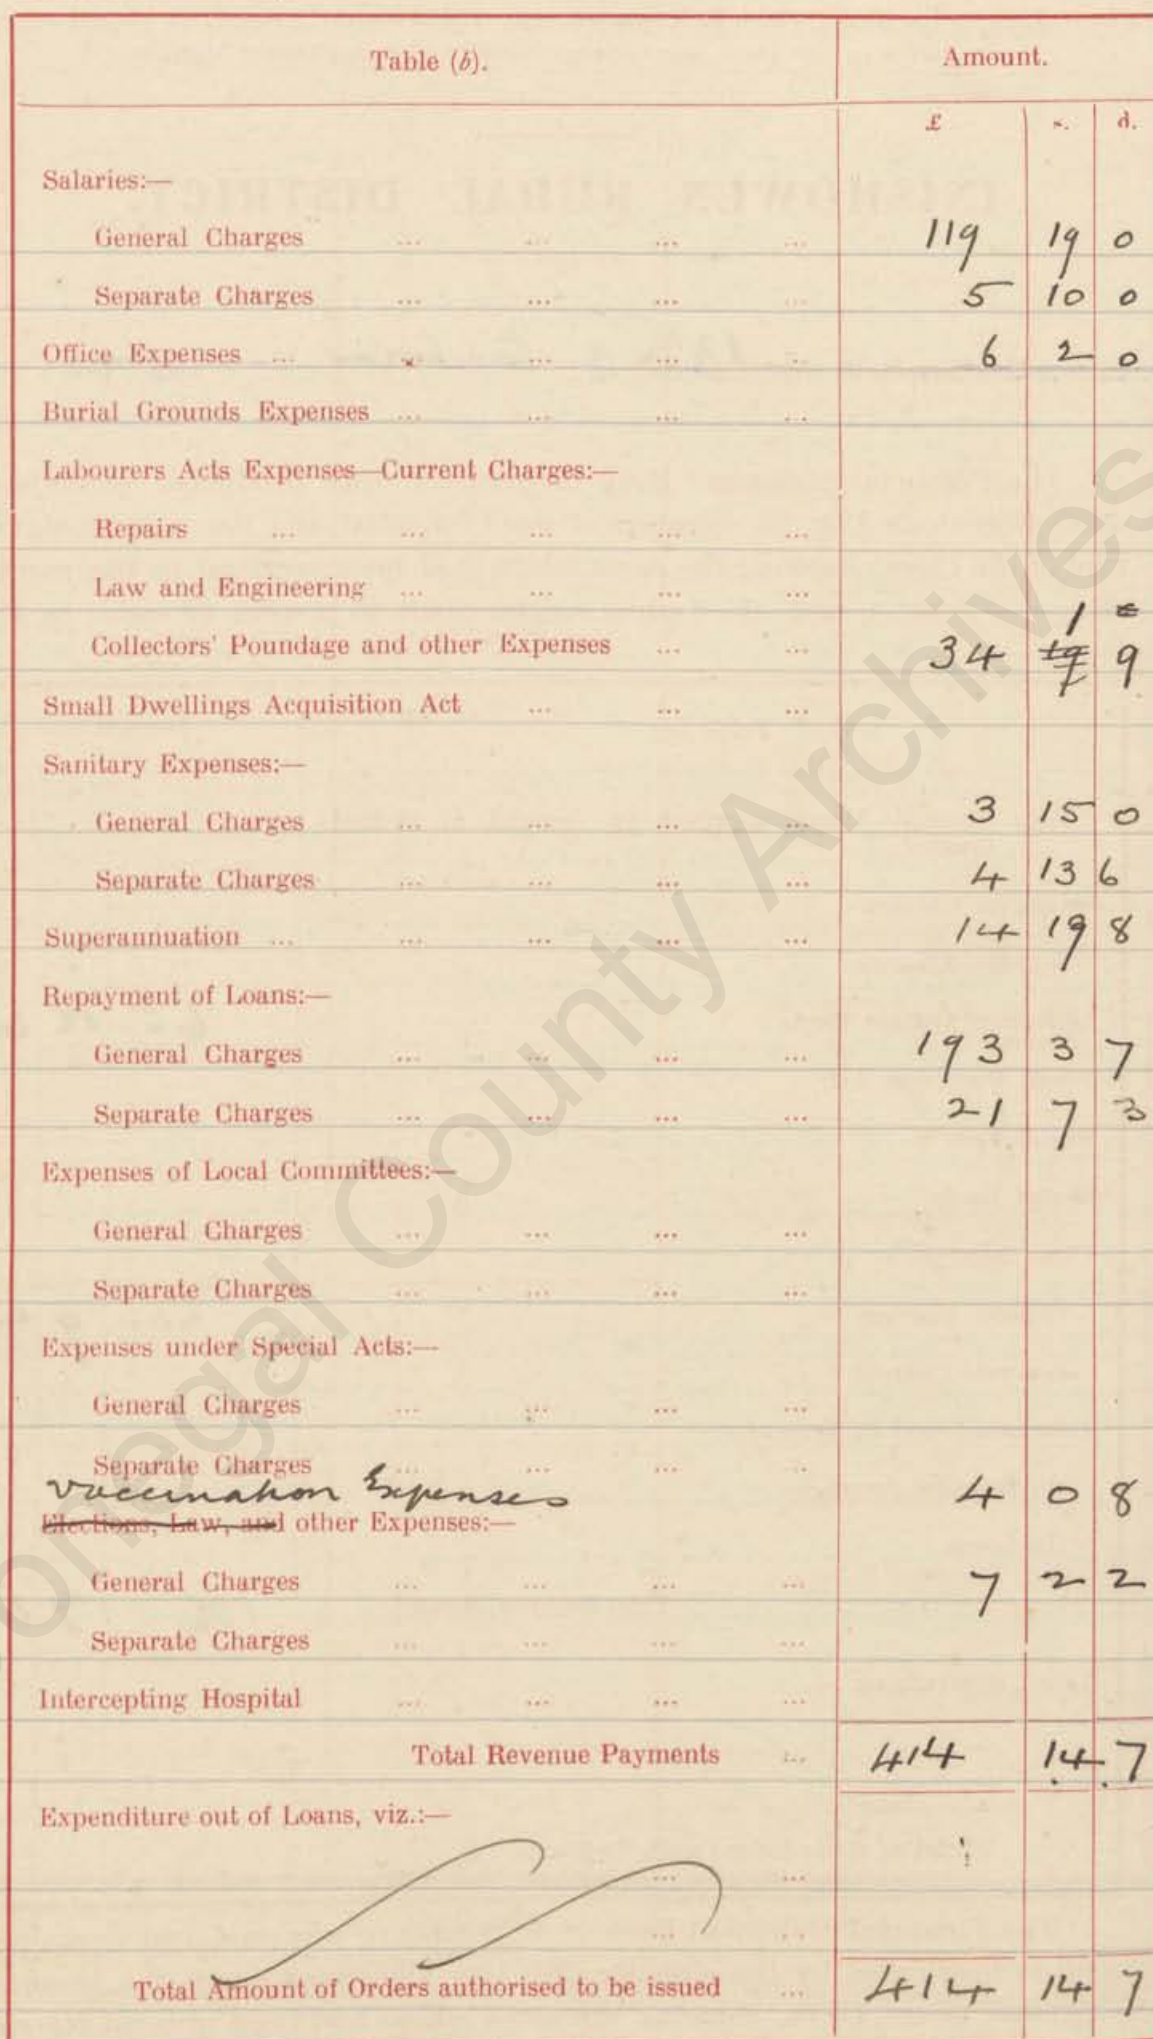 Table (b). Amount.
£ s. d.
Salaries:—
General Charges ... ... ... ... 119 19 0
Separate Charges ... ... ... ... 5 10 0
Office Expenses ... ... ... ... ... 6 2 0
Burial Grounds Expenses ... ... ... ...
Labourers Acts Expenses—Current Charges:—
Repairs ... ... ... ... ...
Law and Engineering ... ... ... ...
Collectors' Poundage and other Expenses ... ... 34 1 9
Small Dwellings Acquisition Act ... ... ...
Sanitary Expenses:—
General Charges ... ... ... ... 3 15 0
Separate Charges ... ... ... ... 4 13 6
Superannuation ... ... ... ... ... 14 19 8
Repayment of Loans:—
General Charges ... ... ... ... 193 3 7
Separate Charges ... ... ... ... 21 7 3
Expenses of Local Committees:—
General Charges ... ... ... ...
Separate Charges ... ... ... ...
Expenses under Special Acts:—
General Charges ... ... ... ...
Separate Charges ... ... ... ...
Vaccination Expenses 4 0 8
Elections, Law, and other Expenses:—
General Charges ... ... ... ... 7 2 2
Separate Charges ... ... ... ...
Intercepting Hospital ... ... ... ...
Total Revenue Payments ... 414 14 7
Expenditure out of Loans, viz.:—
... ...
... ...
Total Amount of Orders authorised to be issued ... 414 14 7
onegal County Archives